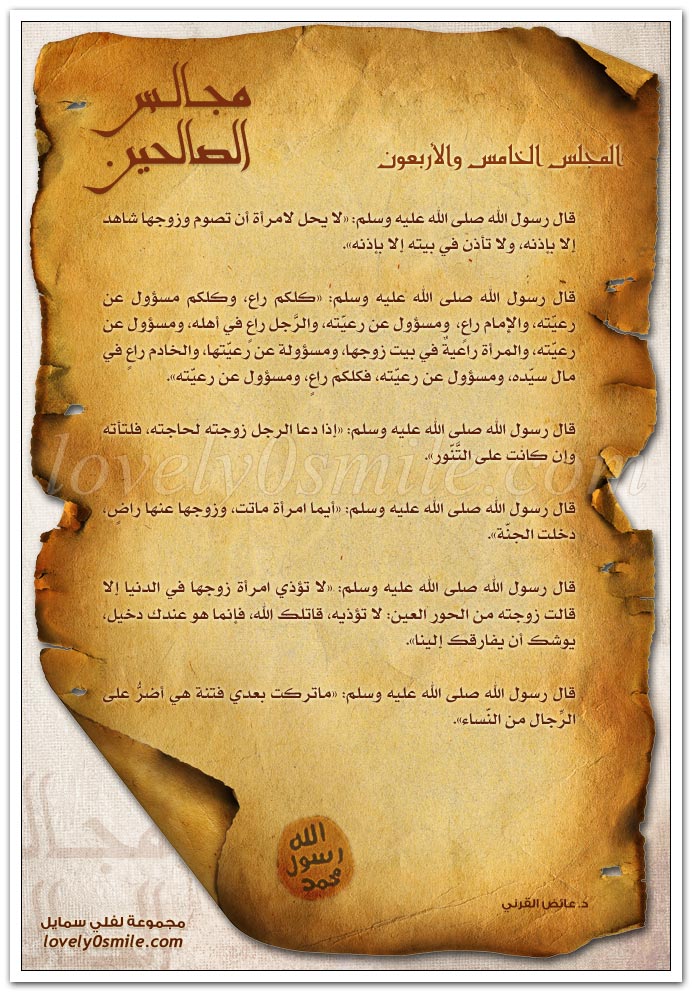 مجالس
الصالحين
المجلس الخامس والأربعون
قال رسول الله صلى الله عليه وسلم: «لا يحل لامرأة أن تصوم وزوجها شاهد
إلا بإذنه، ولا تأذن في بيته إلا بإذنه».
قال رسول الله صلى الله عليه وسلم: «كلكم راع، وكلكم مسؤول عن
رعيّته، والإمام راعٍ، ومسؤول عن رعيّته، والرَّجل راعٍ في أهله، ومسؤول عن
رعيّته، والمرأة راعيةٌ في بيت زوجها، ومسؤولة عن رعيّتها، والخادم راعٍ في
مال سيّده، ومسؤول عن رعيّته، فكلكم راعٍ، ومسؤول عن رعيّته».
قال رسول الله صلى الله عليه وسلم: «إذا دعا الرجل زوجته لحاجته، فلتأته
وإن كانت على التَّنّور».
lovely0smile.com
قال رسول الله صلى الله عليه وسلم: «أيما امرأة ماتت، وزوجها عنها راضٍ،
دخلت الجنّة».
قال رسول الله صلى الله عليه وسلم: «لا تؤذي امرأة زوجها في الدنيا إلا
قالت زوجته من الحور العين: لا تؤذيه، قاتلك الله، فإنما هو عندك دخيل،
يوشك أن يفارقك إلينا».
قال رسول الله صلى الله عليه وسلم: «ماتركت بعدي فتنة هي أضرُّ على
الرِّجال من النّساء».
الله
رسول
محمد
د.عائض القرني
مجموعة لفلي سمايل
lovely0smile.com